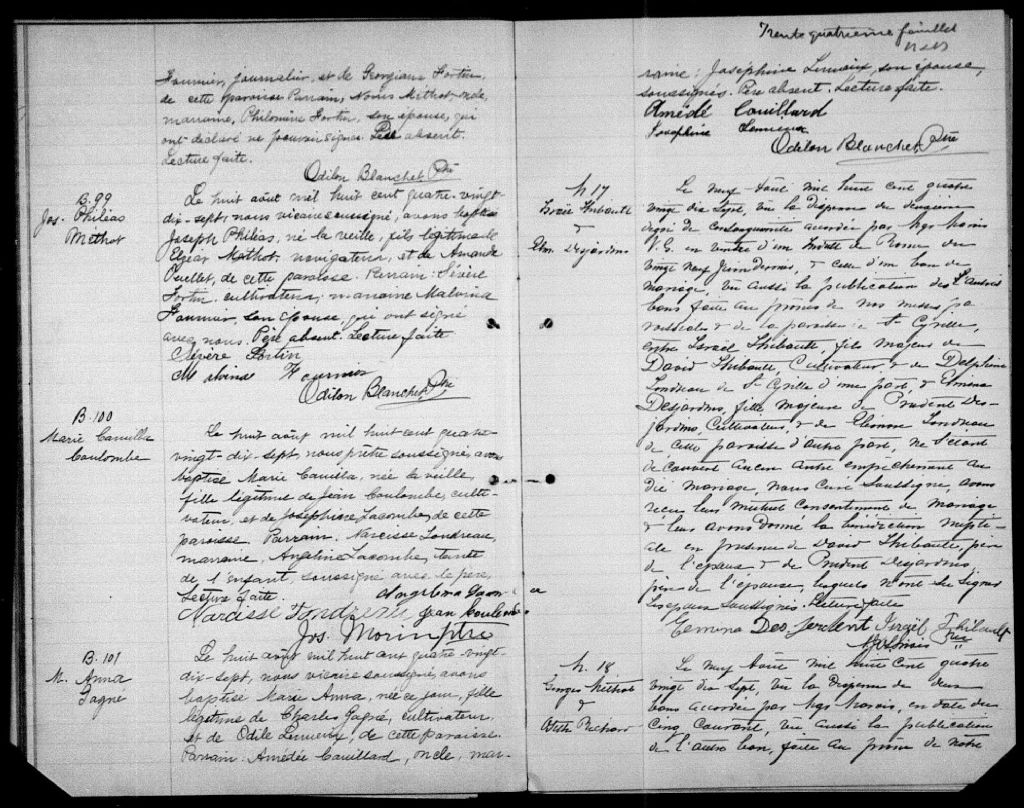 Fournier, journalier, et de Georgiana Fortin,
de cette paroisse Parrain, Méthot, oncle,
marraine, Philomène Fortin, son épouse, qui
ont déclaré ne pouvoir signer. Père absent.
Lecture faite.
Odilon Blanchet Ptre
B. 99
Jos. Philias
Méthot
Le huit août mil huit cent quatre-vingt-
dix-sept, nous vicaire soussigné, avons baptisé
Joseph Philias, né la veille, fils légitime de
Elzéar Méthot, navigateur, et de Amanda
Ouellet, de cette paroisse. Parrain: Sévère
Fortin, cultivateur, marraine Malvina
Fournier, son épouse, qui ont signé
avec nous. Père absent. Lecture faite
Cévère Fortin
Malvina Fournier
Odilon Blanchet, Ptre
B. 100
Marie Camilla
Coulombe
Le huit août mil huit cent quatre-
vingt-dix-sept, nous prêtre soussigné, avons
baptisé Marie Camilla, née la veille,
fille légitime de Jean Coulombe, culti-
vateur, et de Joséphine Lacombe, de cette
paroisse Parrain, Narcisse Fondreau,
marraine, Angelina Lacombe, tante
de l'enfant, soussigné avec le père.
Lecture faite. Angelina
Narcisse Jean
Jos. Morin ptre
B. 101
M. Anna
Gagné
Le huit août mil huit cent quatre-vingt-
dix-sept, nous vicaire soussigné, avons
baptisé Marie Anna, née ce jour, fille
légitime de Charles Gagné, cultivateur
et de Odile Lemieux, de cette paroisse.
Parrain: Amédée Couillard, oncle, mar-
Trente quatrième feuillet
raine: Joséphine Lemieux, son épouse,
soussignés. Père absent. Lecture faite.
Amédé Couillard
Josephine Lemieux
Odilon Blanchet, Ptre
M 17
Israël Thibault
&
Elm. Desjardins
Le neuf Août mil huit cent quatre
vingt dix sept, vu la dispense du deuxième
degré de consanguinité accordée par Mgr Marois
V. G. en vertu d'un Indult de Rome du
vingt neuf Juin dernier, & celle d'un ban de
mariage, vu aussi la publication des autres
bans faite au prône de nos messes pa
roissiales & de la paroisse de St Cyrille,
entre Israël Thibault, fils majeur de
David Thibault, Cultivateur & de Delphine
Fondreau de St Cyrille d'une part & Elmina
Desjardins, fille majeure de Prudent Des-
jardins, Cultivateur, & de Eléonore Fondreau
de cette paroisse d'autre part, ne s'étant
découvert aucun autre empêchement au
dit mariage, nous Curé Soussigné, avons
reçu leur mutuel Consentement de Mariage
& leur avons donné la bénédiction nupti-
ale en présence de David Thibault, père
de l'époux & de Prudent Desjardins
père de l'épouse, lesquels n'ont su signer
Les époux soussignés. Lecture faite
Thibault
Ptre
M. 18
Georges Méthot
&
Richard
Le neuf Août mil huit cent quatre
vingt dix sept, vu la dispense de deux
bans accordée par Mgr Marois, en date du
cinq Courant, vu aussi la publication
de l'autre ban, faite au prône de notre